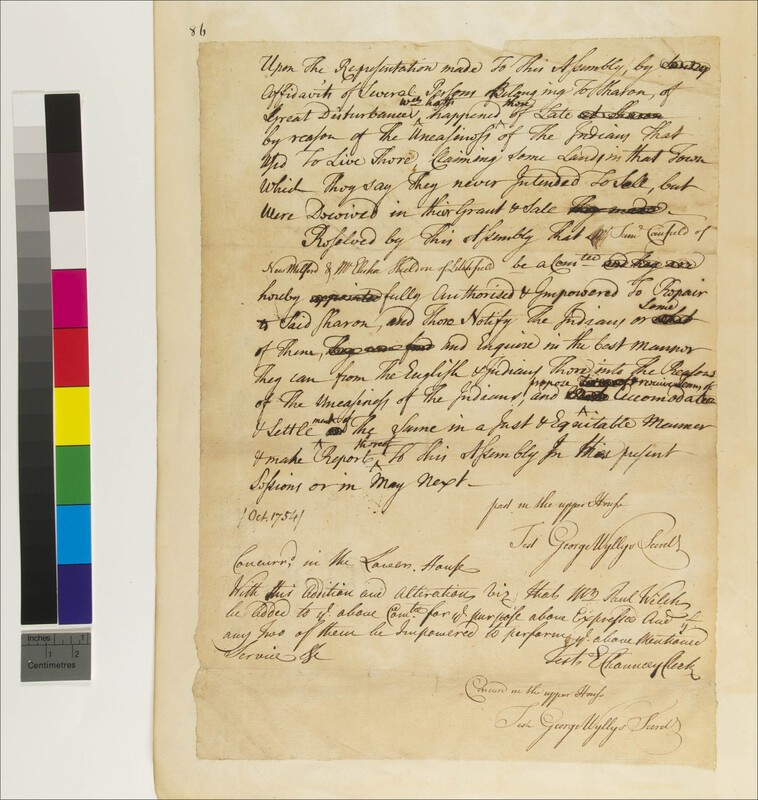 86
Upon the Representation made To This Assembly, by
Affidavits of Several Persons Belonging To Sharon, of
Great Disturbances wch hath happened there of Late at Sharon
by reason of the Uneasiness of The Indians That
Us'd To Live There, Claiming Some Lands in that Town
Which They say They never Intended To Sell, but
Were Deceived in their Grant & Sale they made.
Resolved by This Assembly That Mr Samll Canfield of
New Milford & Mr Elisha Sheldon of Litchfield be a Comtee and they are
hereby appointed fully Authorised & Impowered To Repair
to Said Sharon, and There Notify The Indians or Some
of them, and Enquire in the best manner
They can from the English & Indians There into The Reasons
of The Uneasiness of The Indians, and propose terms of Accomodation
& Settlement of The Same in a Just & Equitable Manner
& make Report thereof To This Assembly In this present
Sessions or in May Next.
[Oct. 1754]
past in the upper House
Test George Wyllys Secrety
Concurrd in the Lower House
With this addition and alteration viz that Mr Paul Welch
be added to ye above Comtee for ye purpose above Expressed And yt
any two of them be Impowered to perform ye above Mentioned
Service &c
Test E Chauncey Clerk
Concurd in the upper House
Test George Wyllys Secrety
Inches
1
2
Centimetres